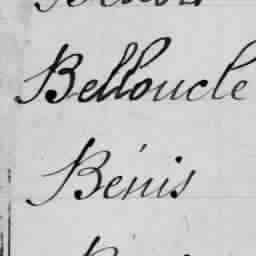 Belloucle
Bénis